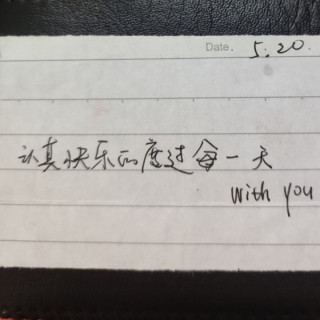 Date. 5.20.
认真快乐的度过每一天
with you